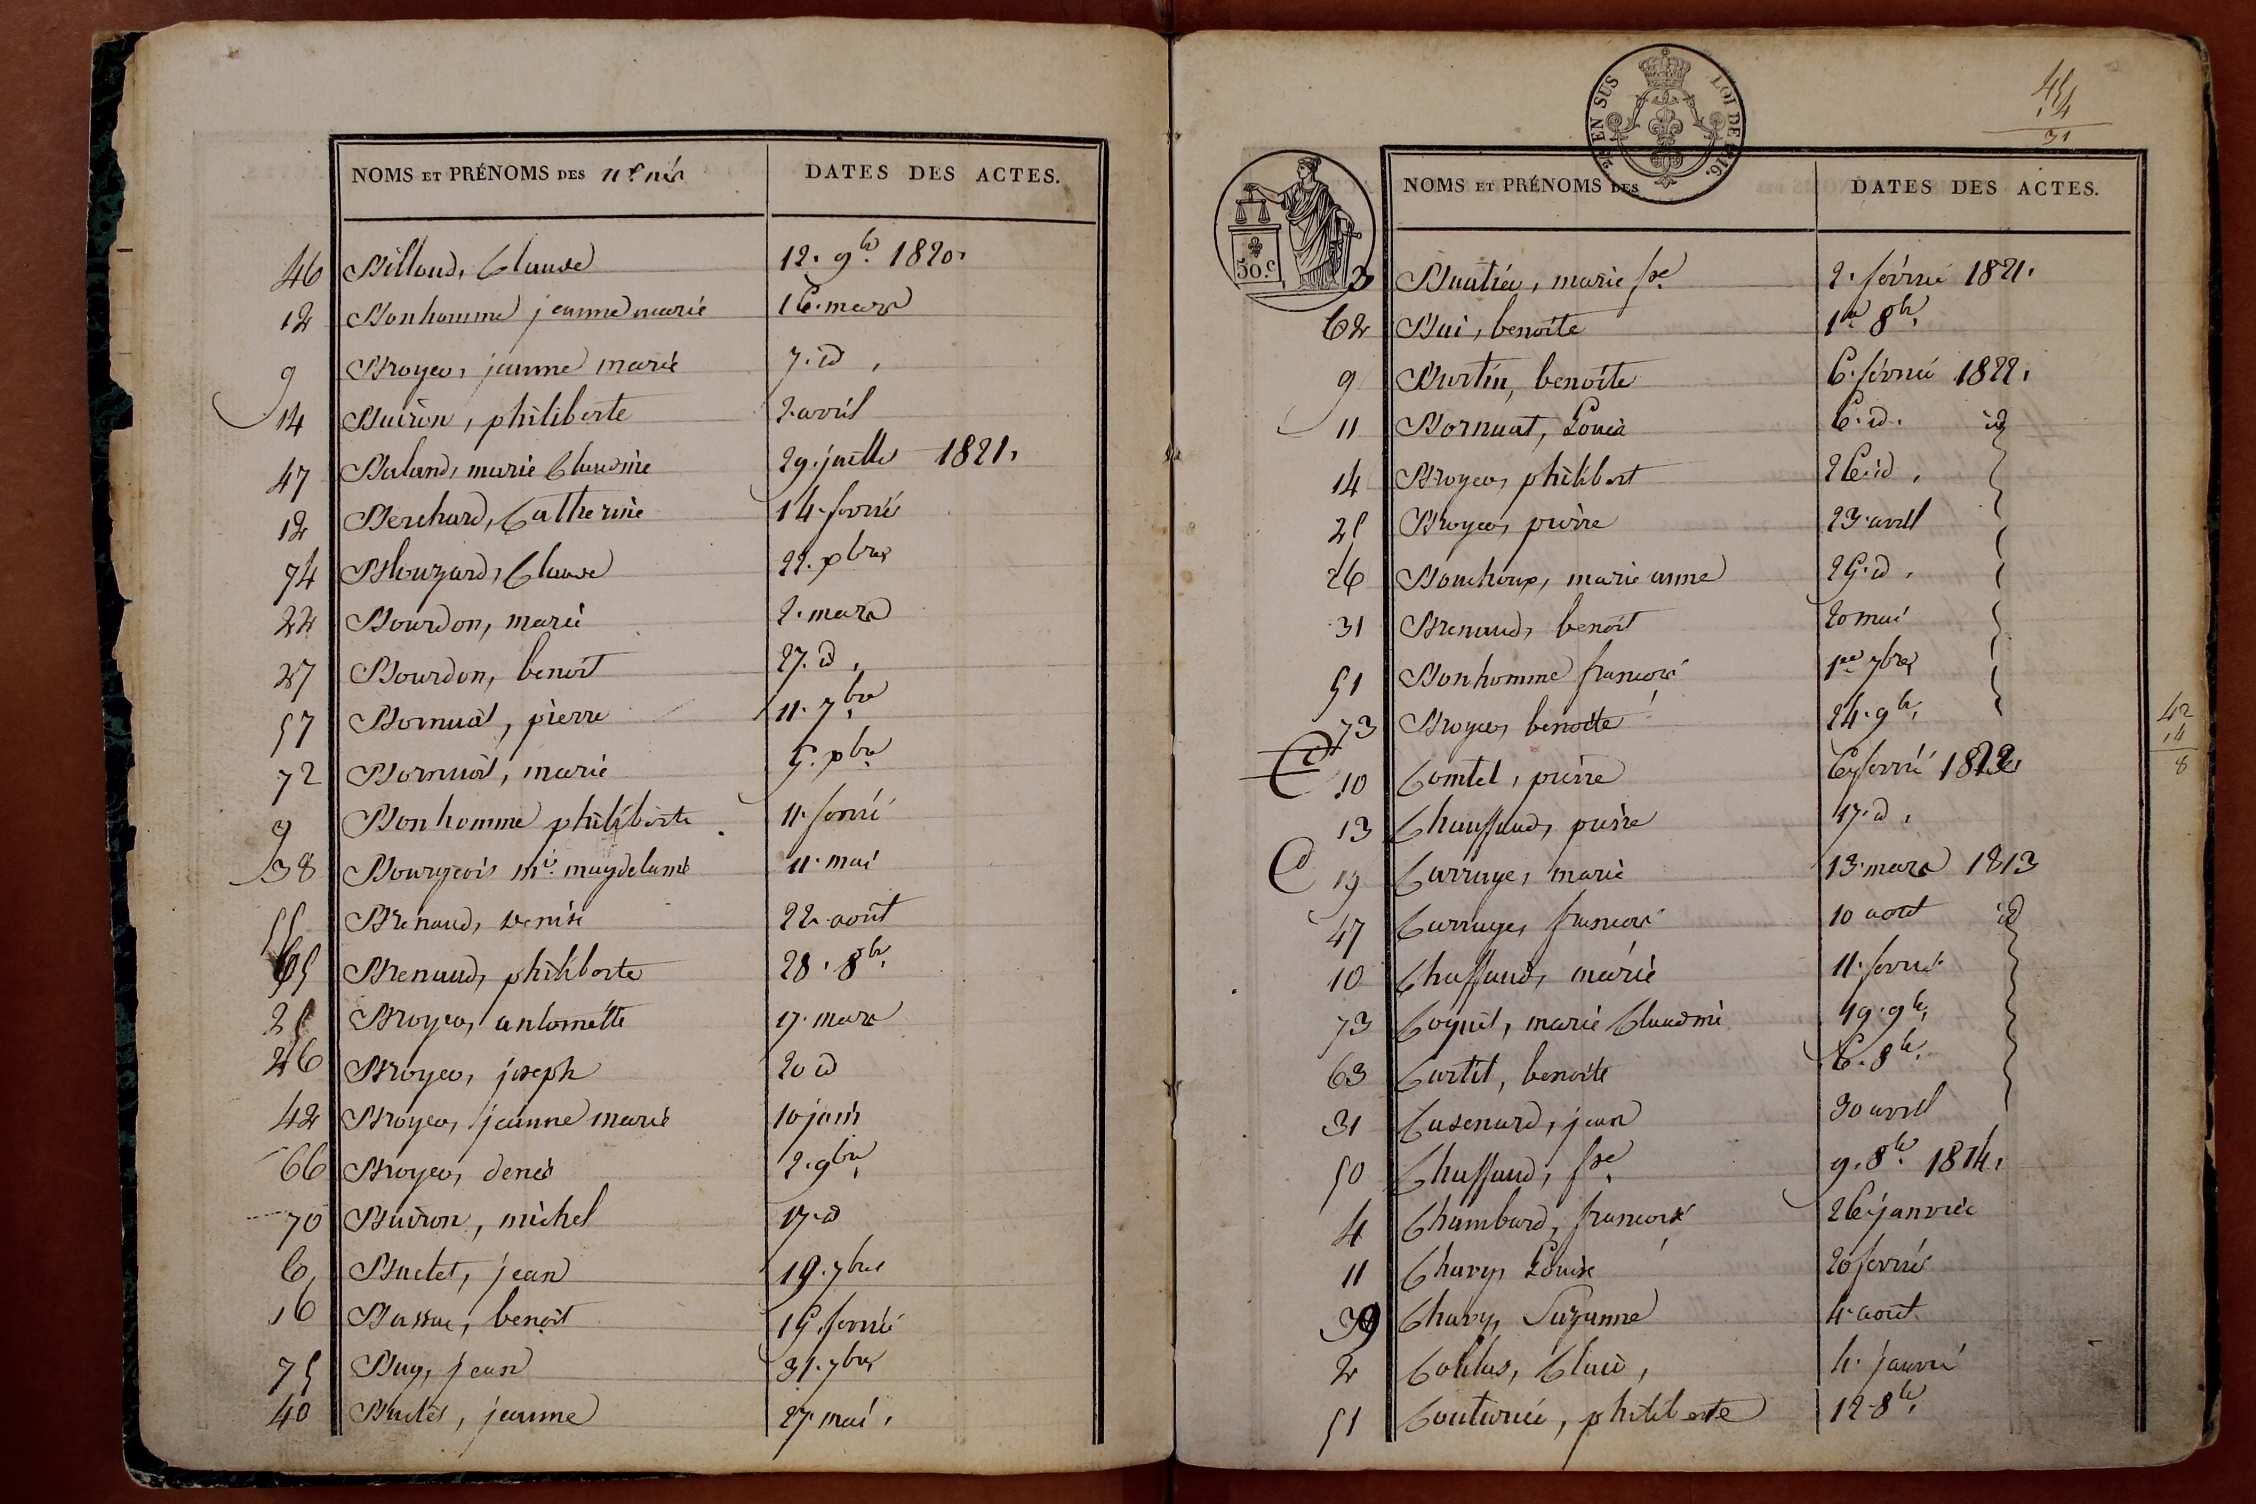 NOMS ET PRÉNOMS DES DATES DES ACTES.
46 Billoud, Claude 12. 9b. 1820.
12 Bonhomme jeanne marie 16. mars
9 Broyer, jeanne marie 7. id.
14 Buiron, philiberte 2. avril
47 Baland, marie Claudine 29. juillet 1821.
12 Berchard, Catherine 14. fevrier
74 Blouzard, Claude 22. xbre
22 Bourdon, marie 2. mars
27 Bourdon, benoit 27. id.
57 Bornuat, pierre 11. 7bre
72 Bornuat, marie 5. xbre
9 Bonhomme philiberte 11. fevrié
38 Bourgeois mie magdelaine 11. mai
55 Brenaud, denise 22. août
65 Brenaud, philiberte 28. 8b.
25 Broyer, antoinette 17. mars
26 Broyer, joseph 20 id
42 Broyer, jeanne marie 10 juin
66 Broyer, denis 2. 9bre
70 Buiron, michel 17. id
6, Buclet, jean 19. 7bre
16 benoit 15. fevrié
75 Buy, jean 31. 7bre
40 jeanne 27. mai.
2e EN SUS LOI DE 1816.
50.c
31
NOMS ET PRÉNOMS DES DATES DES ACTES.
3 marie fse 2. févrié 1821.
62 Bui, benoite 1er 8b.
9 Burtin, benoite 6. févrié 1822.
11 Bornuat, Louis 6. id. id
14 Broyer, philibert 26. id.
25 Broyer, pierre 23. avril
26 Bouchoux, marie anne 25. id.
31 Brenaud, benoit 20 mai
51 Bonhomme françois 1er 7bre
73 Broyer, benoite 24. 9b.
C
10 Comtet, pierre fevrié
13 Chauffaud, pierre 17. id.
C
19 Carruge, marie 13. mars 1813
47 Carruge, françois 10 aout id
10 Chaffaud, marie 11. fevrié
73 Coquet, marie Claudine 19. 9b.
63 Curtil, benoite 6. 8b.
31 Casenard, jean 30 avril
50 Chaffaud, fse 9. 8b. 1814.
4 Chambard, françois 26. janvier
11 Chavy, Louise 20 fevrié
39 Chavy, Suzanne 4. aout
2 Collas, Claude, 4. janvié
51 Couturié, philiberte 12. 8b.
42
14
8